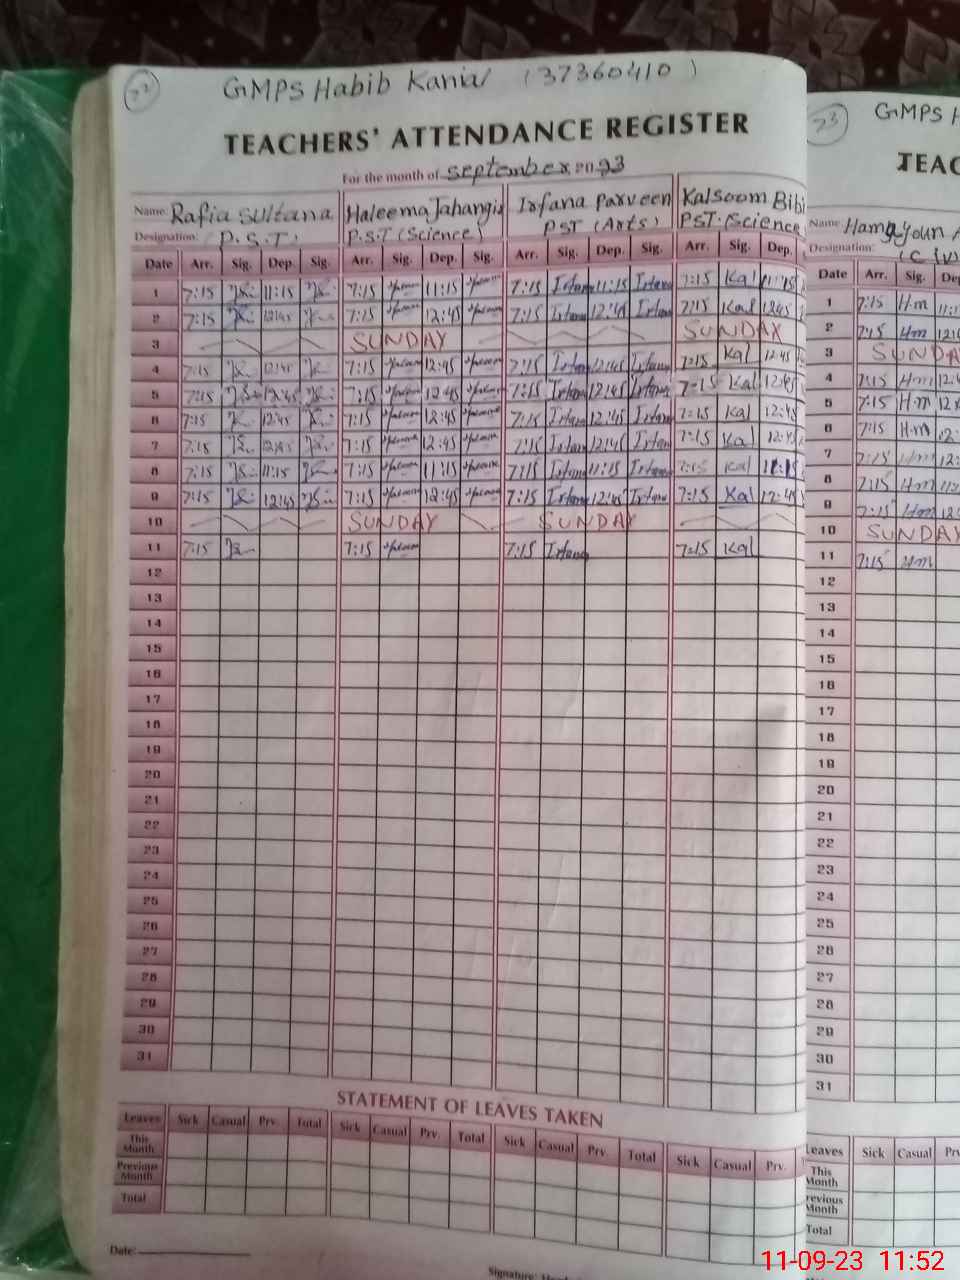 72
GMPS Habib Kania (37360410)
TEACHERS' ATTENDANCE REGISTER
For the month of September 2023
Name: Rafia Sultana Haleema Jahangir Irfana Parveen Kalsoom Bibi
Designation: P.S.T) P.S.T (Science) PST (Arts) PST (Science
Date Arr. Sig. Dep. Sig. Arr. Sig. Dep. Sig. Arr. Sig. Dep. Sig. Arr. Sig. Dep.
1 7:15 11:15 7:15 11:15 7:15 Irfana 11:15 Irfana 7:15 Kal 11:15
2 7:15 12:45 7:15 12:45 7:15 Irfana 12:45 Irfana 7:15 Kal 12:45
3 SUNDAY SUNDAY
4 7:15 12:45 7:15 12:45 7:15 Irfana 12:45 Irfana 7:15 Kal 12:45
5 7:15 12:45 7:15 12:45 7:15 Irfana 12:45 Irfana 7:15 Kal 12:45
6 7:15 12:45 7:15 12:45 7:15 Irfana 12:45 Irfana 7:15 Kal 12:45
7 7:15 12:45 7:15 12:45 7:15 Irfana 12:45 Irfana 7:15 Kal 12:45
8 7:15 11:15 7:15 11:15 7:15 Irfana 11:15 Irfana 7:15 Kal 11:15
9 7:15 12:45 7:15 12:45 7:15 Irfana 12:45 Irfana 7:15 Kal 12:45
10 SUNDAY SUNDAY
11 7:15 7:15 7:15 Irfana 7:15 Kal
12
13
14
15
16
17
18
19
20
21
22
23
24
25
26
27
28
29
30
31
STATEMENT OF LEAVES TAKEN
Leaves Sick Casual Prv. Total Sick Casual Prv. Total Sick Casual Prv. Total Sick Casual Prv.
This Month
Previous Month
Total
Date:
Signature:
73
GMPS
TEAC
Name
Designation:
Date Arr. Sig. De
1 7:15 Hm 11:1
2 7:15 Hm 12:
3 SUNDA
4 7:15 Hm 12:
5 7:15 Hm 12:
6 7:15 Hm 12:
7 7:15 Hm 12:
8 7:15 Hm 11:
9 7:15 Hm 12:
10 SUNDAY
11 7:15 Hm
12
13
14
15
16
17
18
19
20
21
22
23
24
25
26
27
28
29
30
31
Leaves Sick Casual Prv
This Month
revious Month
Total
11-09-23 11:52